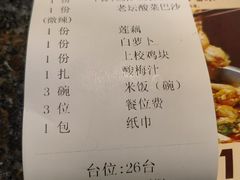 1 份 老坛酸菜巴沙
(微辣)
1 份 莲藕
1 份 白萝卜
1 份 上校鸡块
1 扎 酸梅汁
3 碗 米饭(碗)
3 位 餐位费
1 包 纸巾
台位:26台